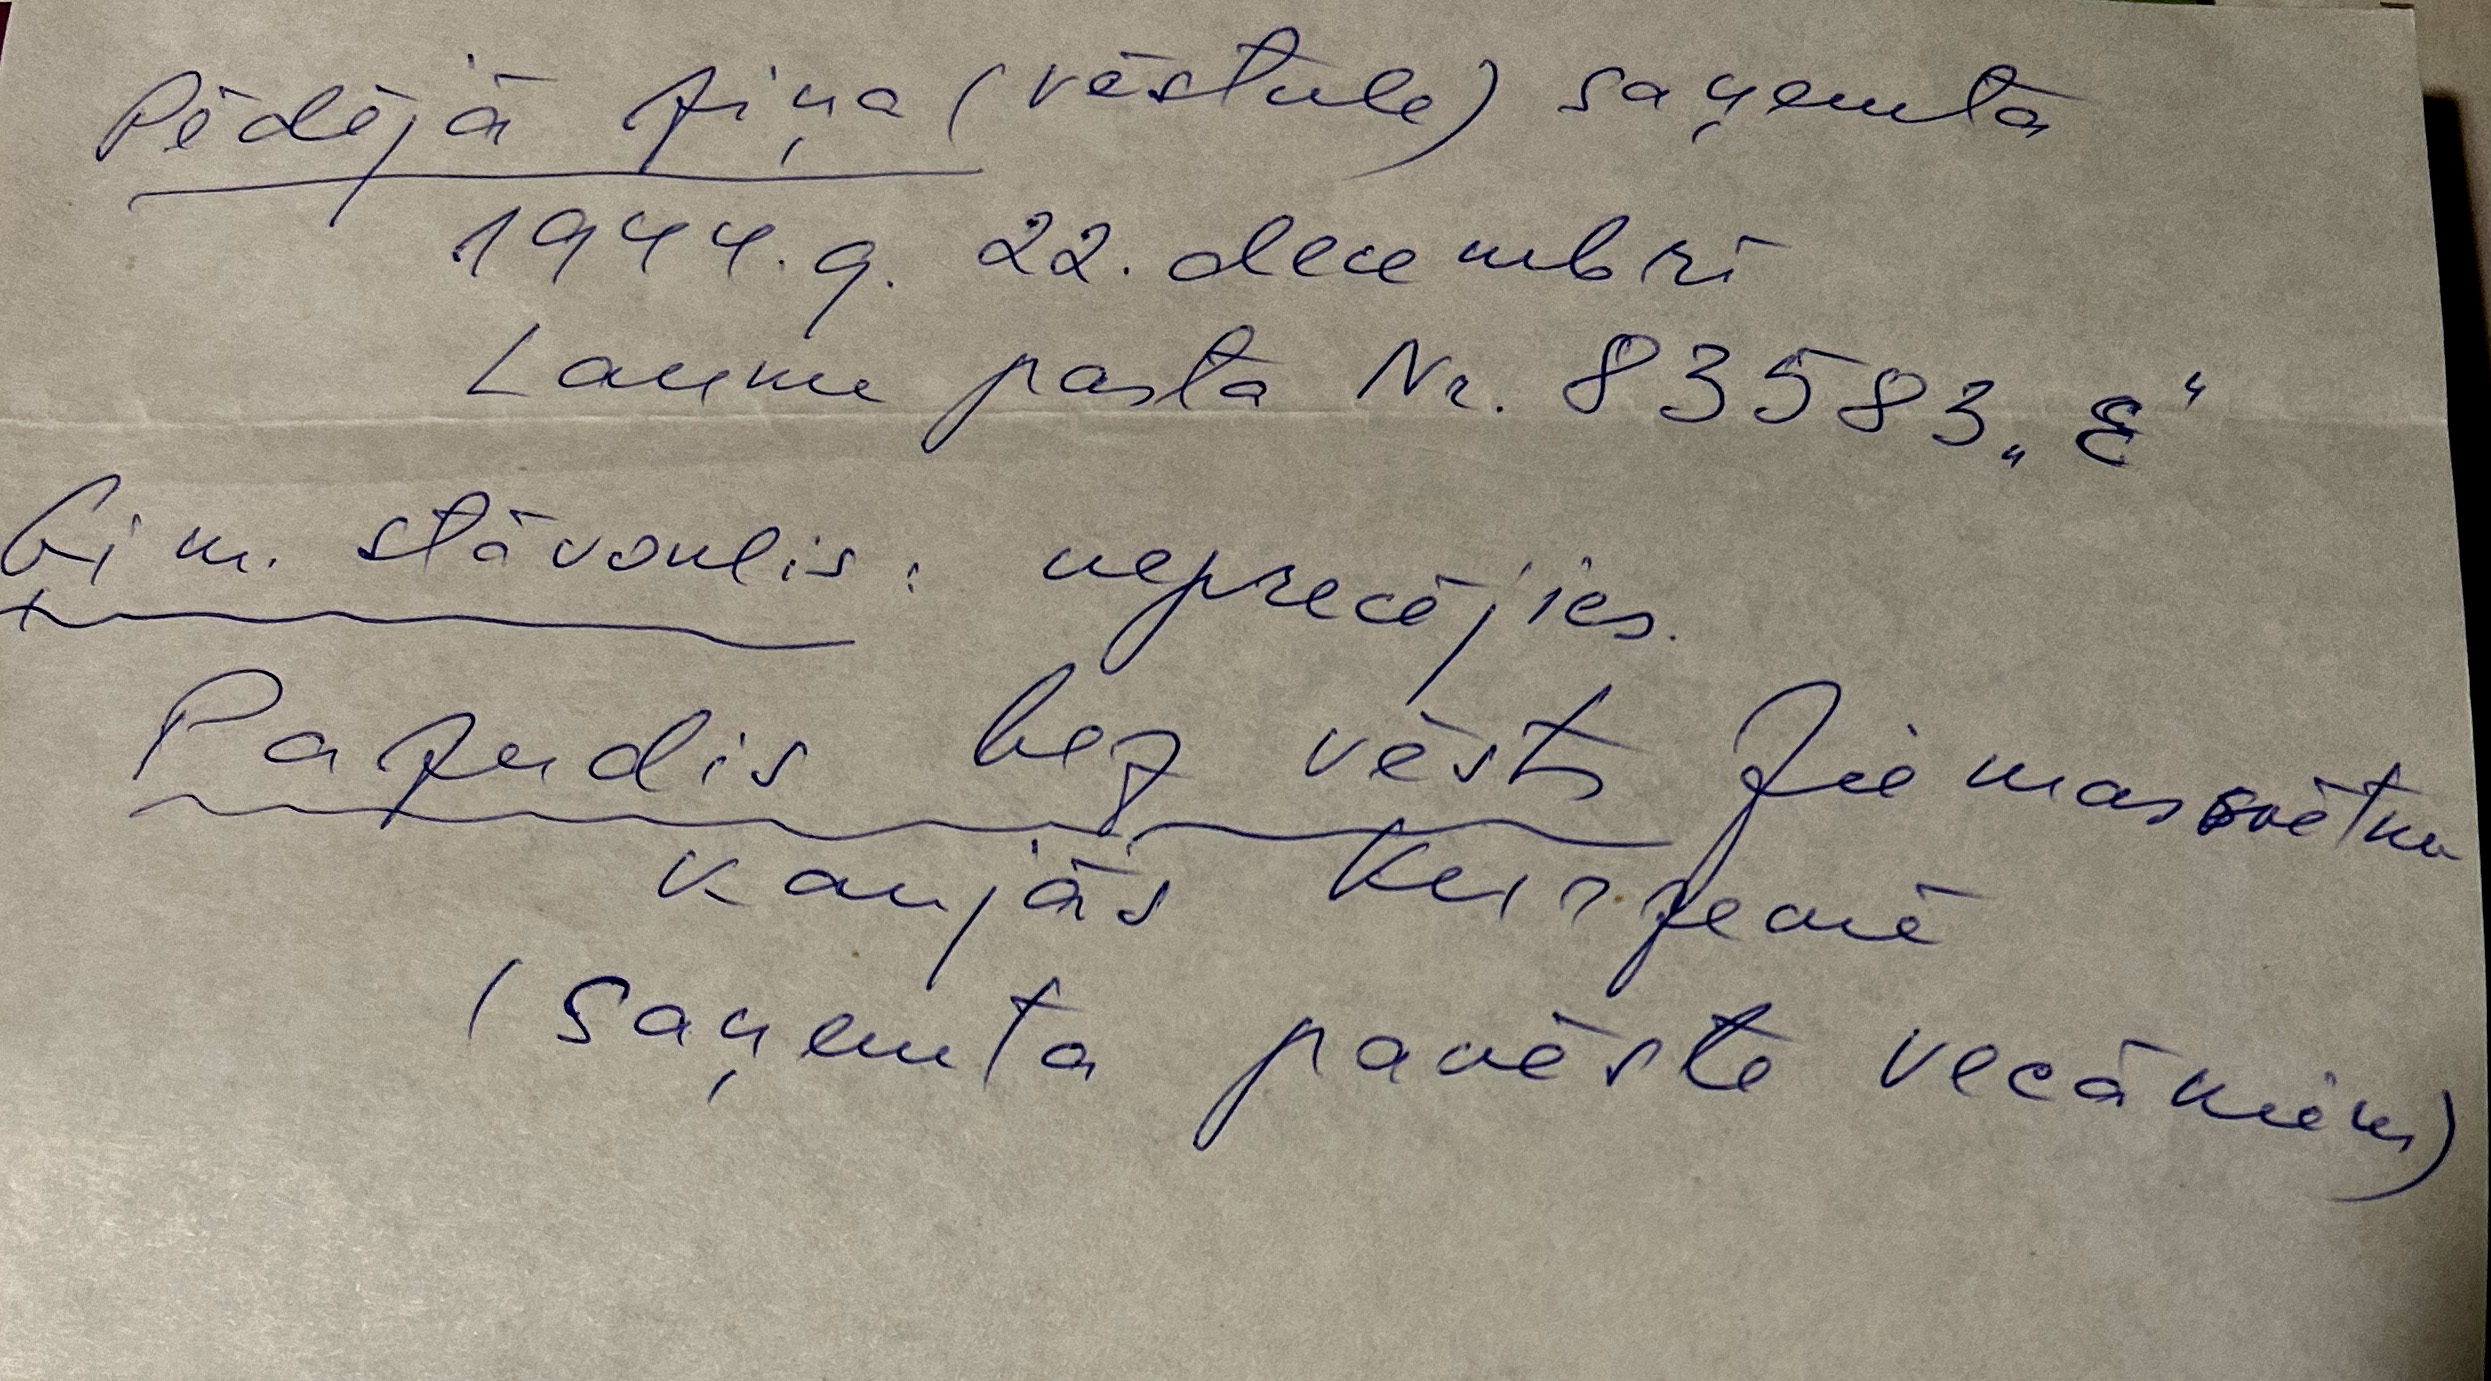 Pēdējā ziņa (vēstule) saņemta
1944. g. 22. decembrī
Lauku pasta Nr. 83583 „E“
Ģim. stāvoklis: neprecējies.
Pazudis bez vēsts Ziemassvētku
kaujās Kurzemē
(saņemta pavēste vecākiem)